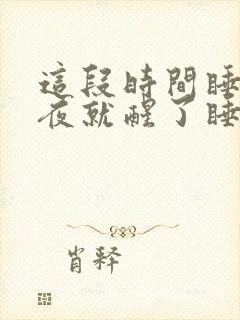 這段時間睡
夜就醒了睡
肖释